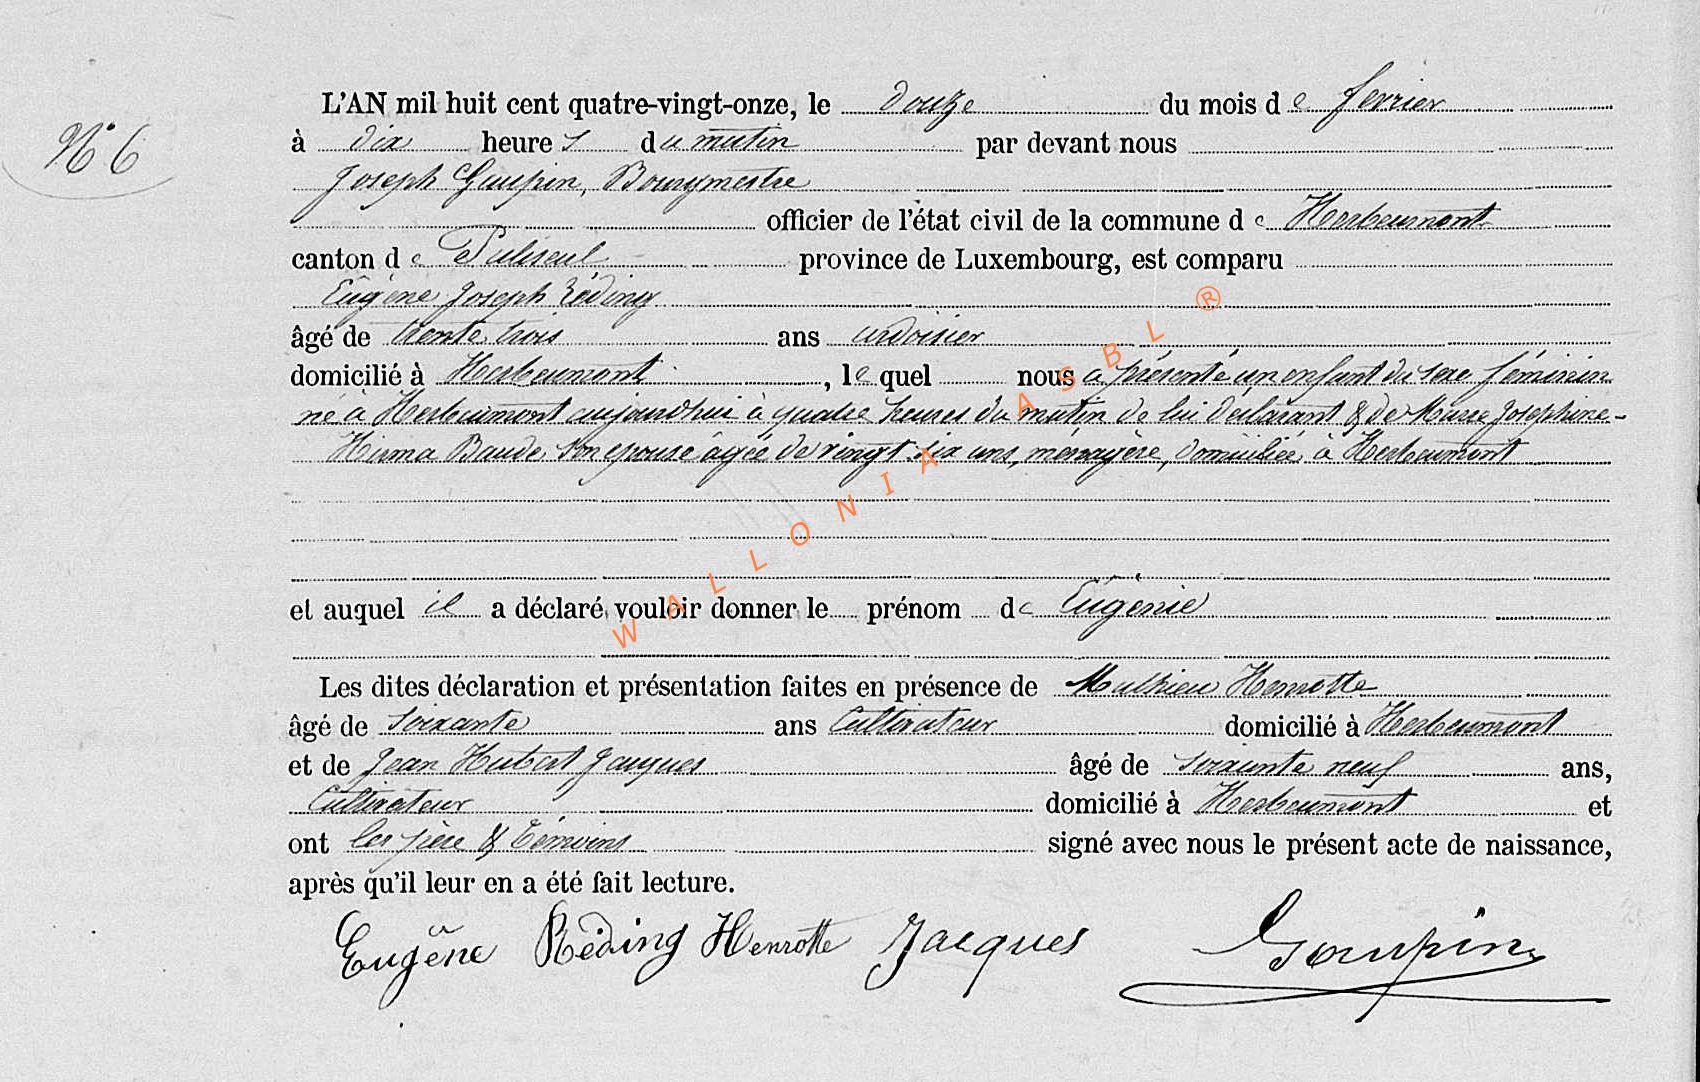 L'AN mil huit cent quatre-vingt-onze, le douze du mois de fevrier
N° 6
à dix heures du matin par devant nous
Joseph Goupin, Bourgmestre
officier de l'état civil de la commune de Herbeumont
canton de Paliseul province de Luxembourg, est comparu
Eugène Joseph Réding
âgé de trente trois ans ardoisier
domicilié à Herbeumont, lequel nous a présenté un enfant du sexe féminin
né à Herbeumont aujourd'hui à quatre heures du matin de lui déclarant & de Marie Josephine-
Baude son epouse âgée de vingt six ans, ménagère, domiciliée à Herbeumont
et auquel il a déclaré vouloir donner le prénom de Eugénie
Les dites déclaration et présentation faites en présence de Mathieu Henrotte
âgé de soixante ans Cultivateur domicilié à Herbeumont
et de Jean Hubert Jacques âgé de soixante neuf ans,
Cultivateur domicilié à Herbeumont et
ont les père & témoins signé avec nous le présent acte de naissance,
après qu'il leur en a été fait lecture.
Eugène Réding Henrotte Jacques Goupin
WALLONIA ASBL ®